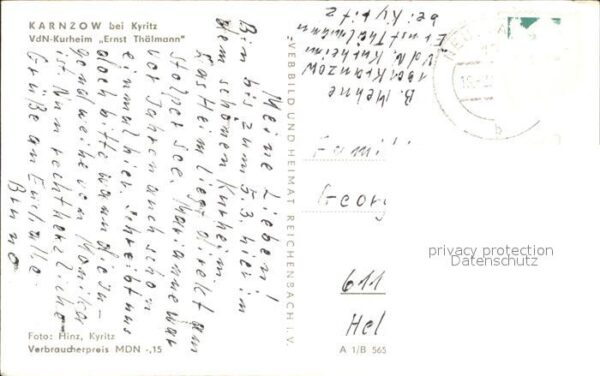 KARNZOW bei Kyritz
VdN-Kurheim „Ernst Thälmann"
Meine Lieben!
Bin bis zum 5.3. hier in
dem schönen Kurheim.
Das Heim liegt direkt am
Stolper See. Marianne war
vor Jahren auch schon
einmal hier. Schreibt uns
doch bitte wann die Ju-
gendweihe von Monika
ist. Nun recht herzliche
Grüße an Euch alle.
Bruno
Foto: Hinz, Kyritz
Verbraucherpreis MDN -,15
VEB BILD UND HEIMAT REICHENBACH I. V.
B. Mehne
1901 Kranzow
VdN. Kurheim
Ernst Thälmann
bei Kyritz
b
Fami
Georg
611
Hel
A 1/B 565
privacy protection
Datenschutz